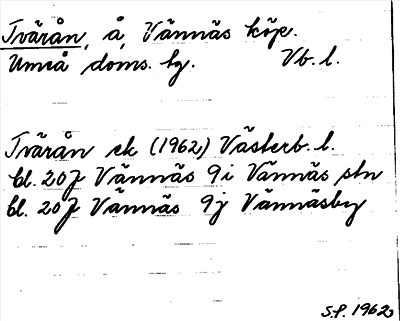 Tvärån, å, Vännäs köp.
Umeå doms. hg. Vb. l.
Tvärån ek (1962) Västerb. l.
bl. 20J Vännäs 9i Vännäs stn
bl. 20J Vännäs 9j Vännäsby
S.P. 1962